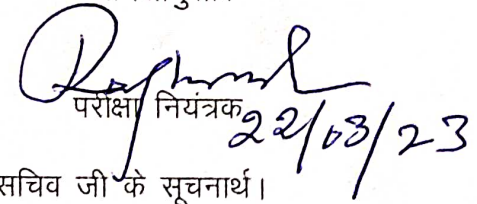 परीक्षा नियंत्रक
22/03/23
सचिव जी के सूचनार्थ।